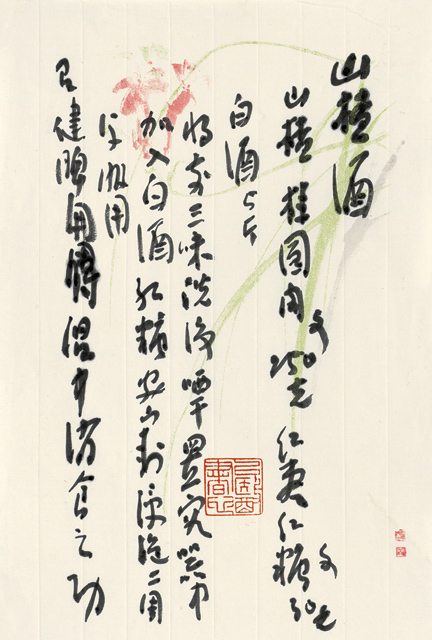 山楂酒
山楂 桂圆肉 各250克 红枣 红糖 各30克
白酒5斤
将前三味洗净晒干置容器中
加入白酒红糖密封浸泡二周
用
有健脾温中消食之功